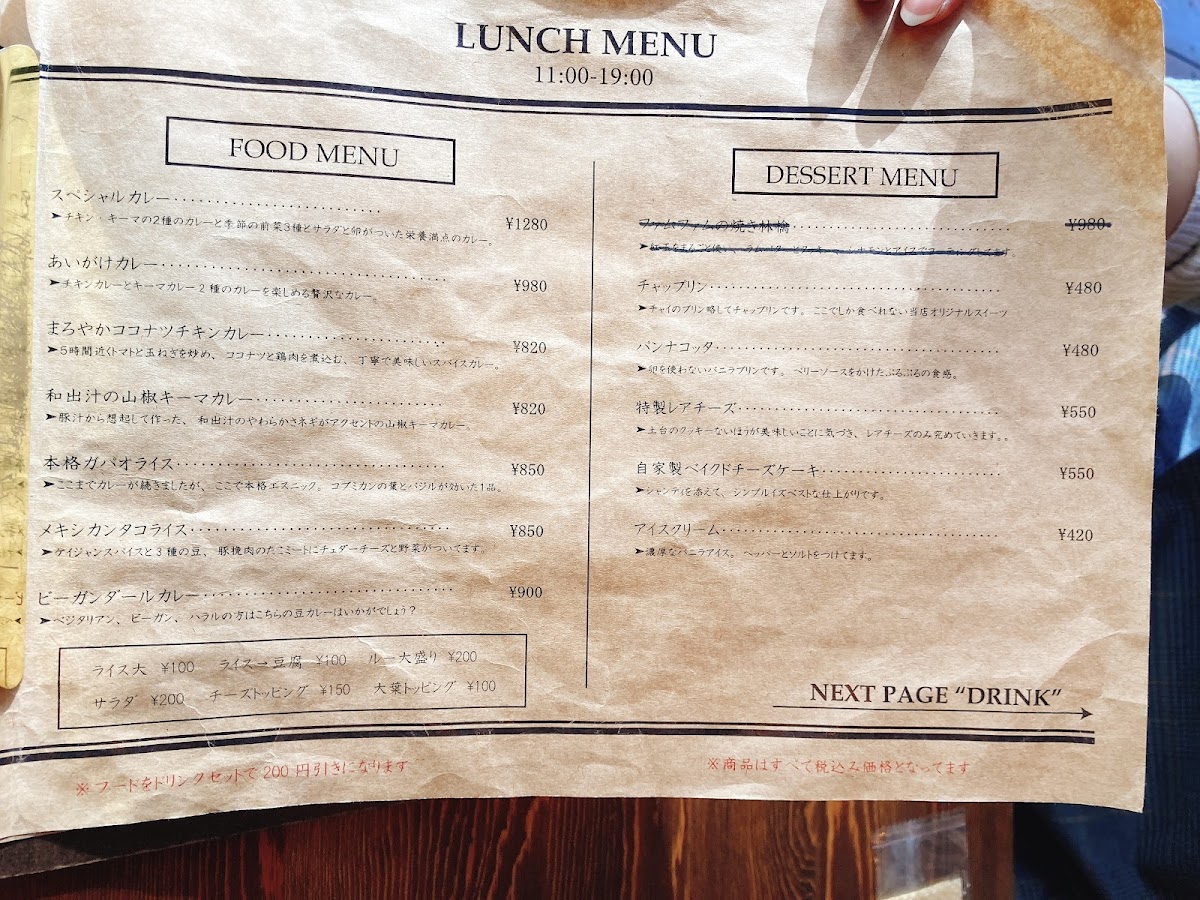 LUNCH MENU
11:00-19:00
FOOD MENU
スペシャルカレー ¥1280
➤チキン・キーマの2種のカレーと季節の前菜3種とサラダと卵がついた栄養満点のカレー。
あいがけカレー ¥980
➤チキンカレーとキーマカレー2種のカレーを楽しめる贅沢なカレー。
まろやかココナツチキンカレー ¥820
➤5時間近くトマトと玉ねぎを炒め、ココナツと鶏肉を煮込む、丁寧で美味しいスパイスカレー。
和出汁の山椒キーマカレー ¥820
➤豚汁から想起して作った、和出汁のやわらかさネギがアクセントの山椒キーマカレー。
本格ガパオライス ¥850
➤ここまでカレーが続きましたが、ここで本格エスニック。コブミカンの葉とバジルが効いた1品。
メキシカンタコライス ¥850
➤ケイジャンスパイスと3種の豆、豚挽肉のたこミートにチェダーチーズと野菜がついてます。
ビーガンダールカレー ¥900
➤ベジタリアン、ビーガン、ハラルの方はこちらの豆カレーはいかがでしょう?
ライス大 ¥100 ライス→豆腐 ¥100 ルー大盛り ¥200
サラダ ¥200 チーズトッピング ¥150 大葉トッピング ¥100
※フードをドリンクセットで200円引きになります
DESSERT MENU
ファムファムの焼き林檎 ¥980
チャップリン ¥480
➤チャイのプリン略してチャップリンです。ここでしか食べれない当店オリジナルスイーツ
パンナコッタ ¥480
➤卵を使わないバニラプリンです。ベリーソースをかけたぷるぷるの食感。
特製レアチーズ ¥550
➤土台のクッキーないほうが美味しいことに気づき、レアチーズのみ究めていきます。。
自家製ベイクドチーズケーキ ¥550
➤シャンティを添えて、シンプルイズベストな仕上がりです。
アイスクリーム ¥420
➤濃厚なバニラアイス。ペッパーとソルトをつけてます。
NEXT PAGE “DRINK”
※商品はすべて税込み価格となってます